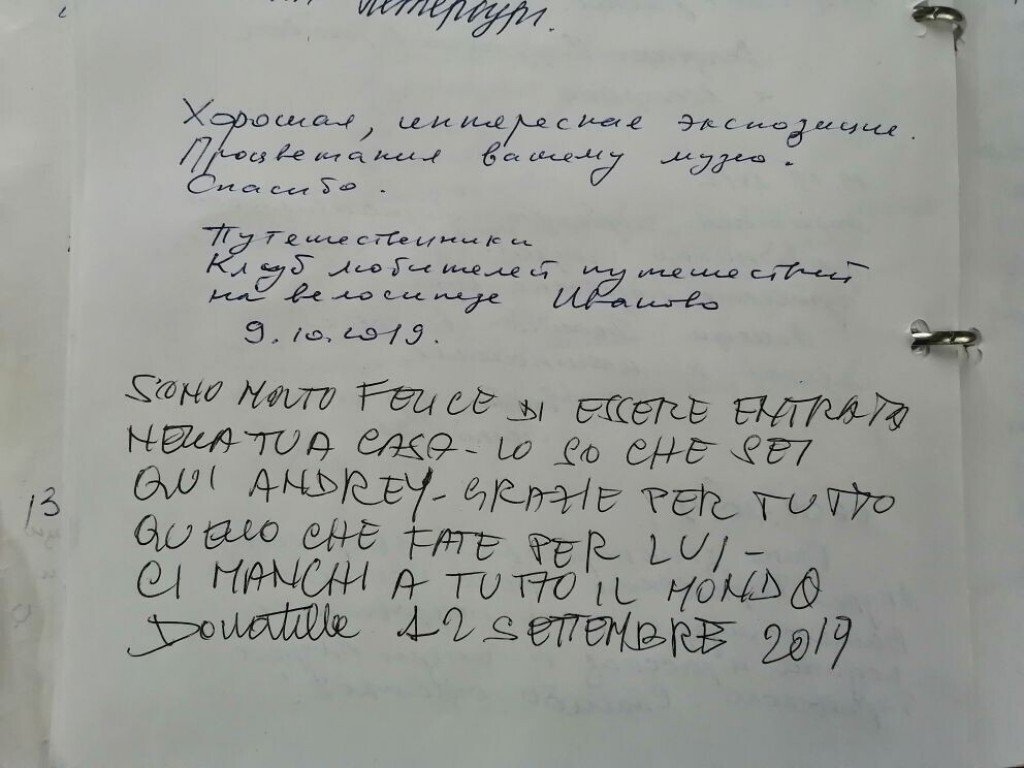 Петербург.
Хорошая, интересная экспозиция.
Процветания вашему музею.
Спасибо.
Путешественники
Клуб любителей путешествий
на велосипеде Иваново
9.10.2019.
SONO MOLTO FELICE DI ESSERE ENTRATA
NELLA TUA CASA - LO SO CHE SEI
QUI ANDREY - GRAZIE PER TUTTO
QUELLO CHE FATE PER LUI -
CI MANCHI A TUTTO IL MONDO
Donatella 12 SETTEMBRE 2019
13